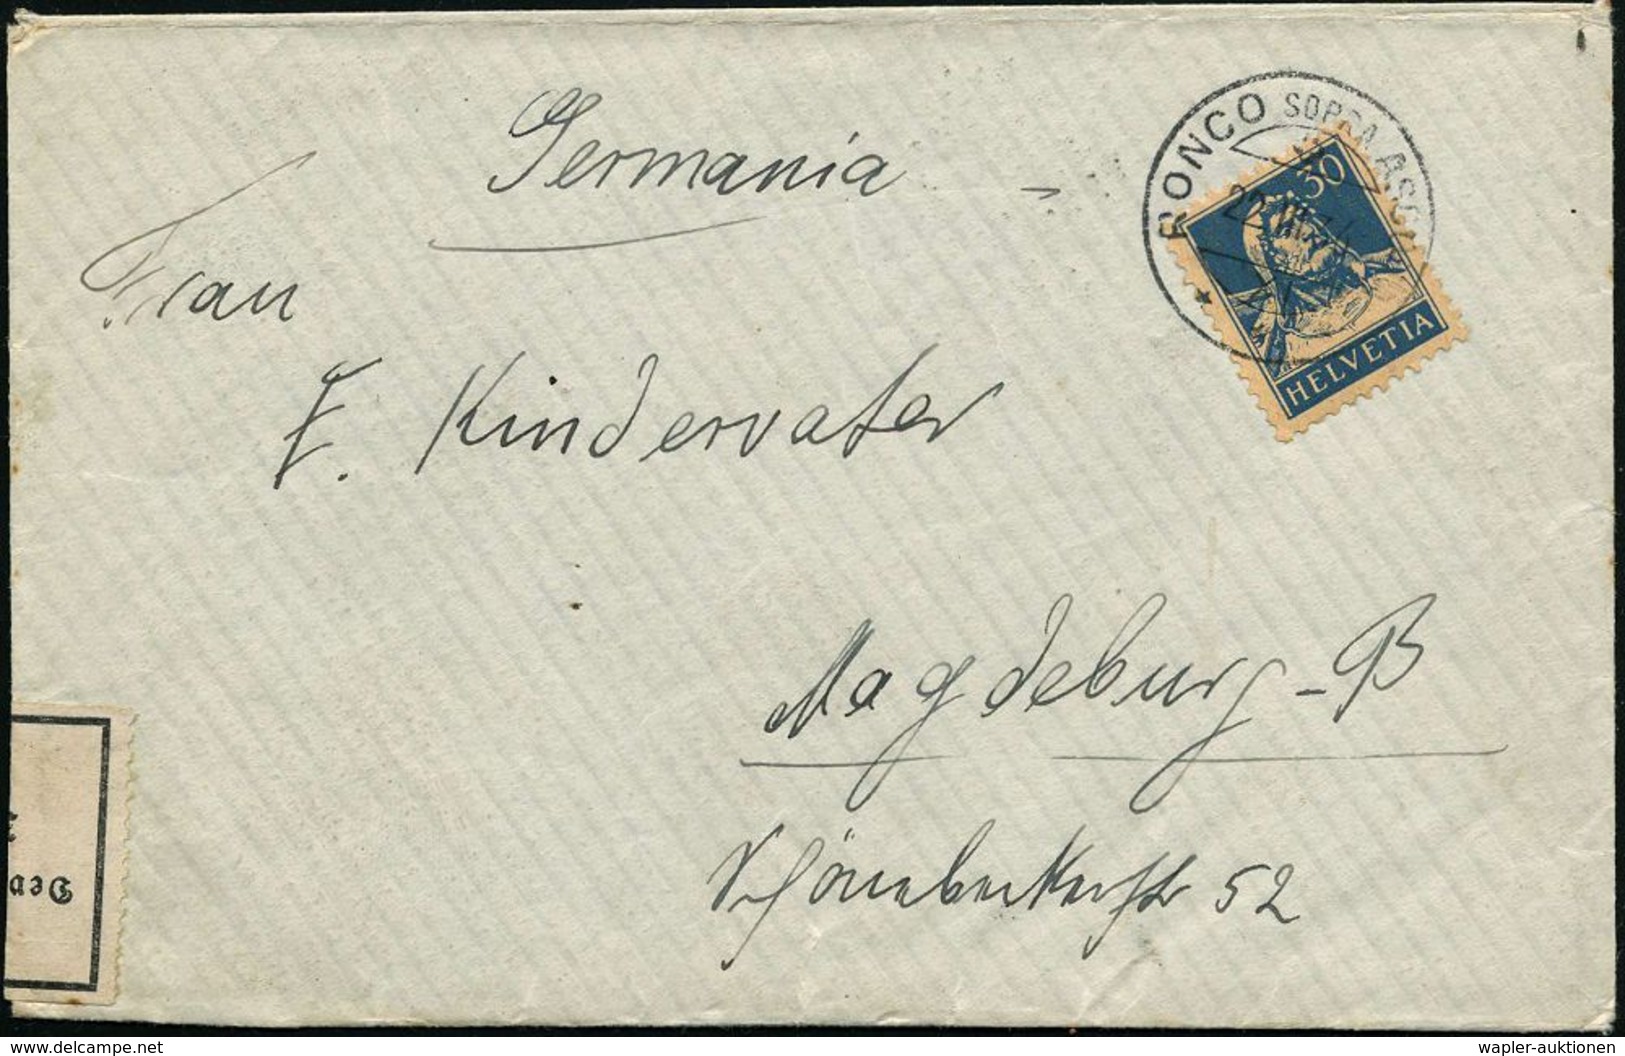 Germania
RONCO SOPRA ASCONA
22.
30
HELVETIA
Frau
E. Kindervater
Magdeburg-B
52
Dev
www.delcampe.net
wapler-auktionen